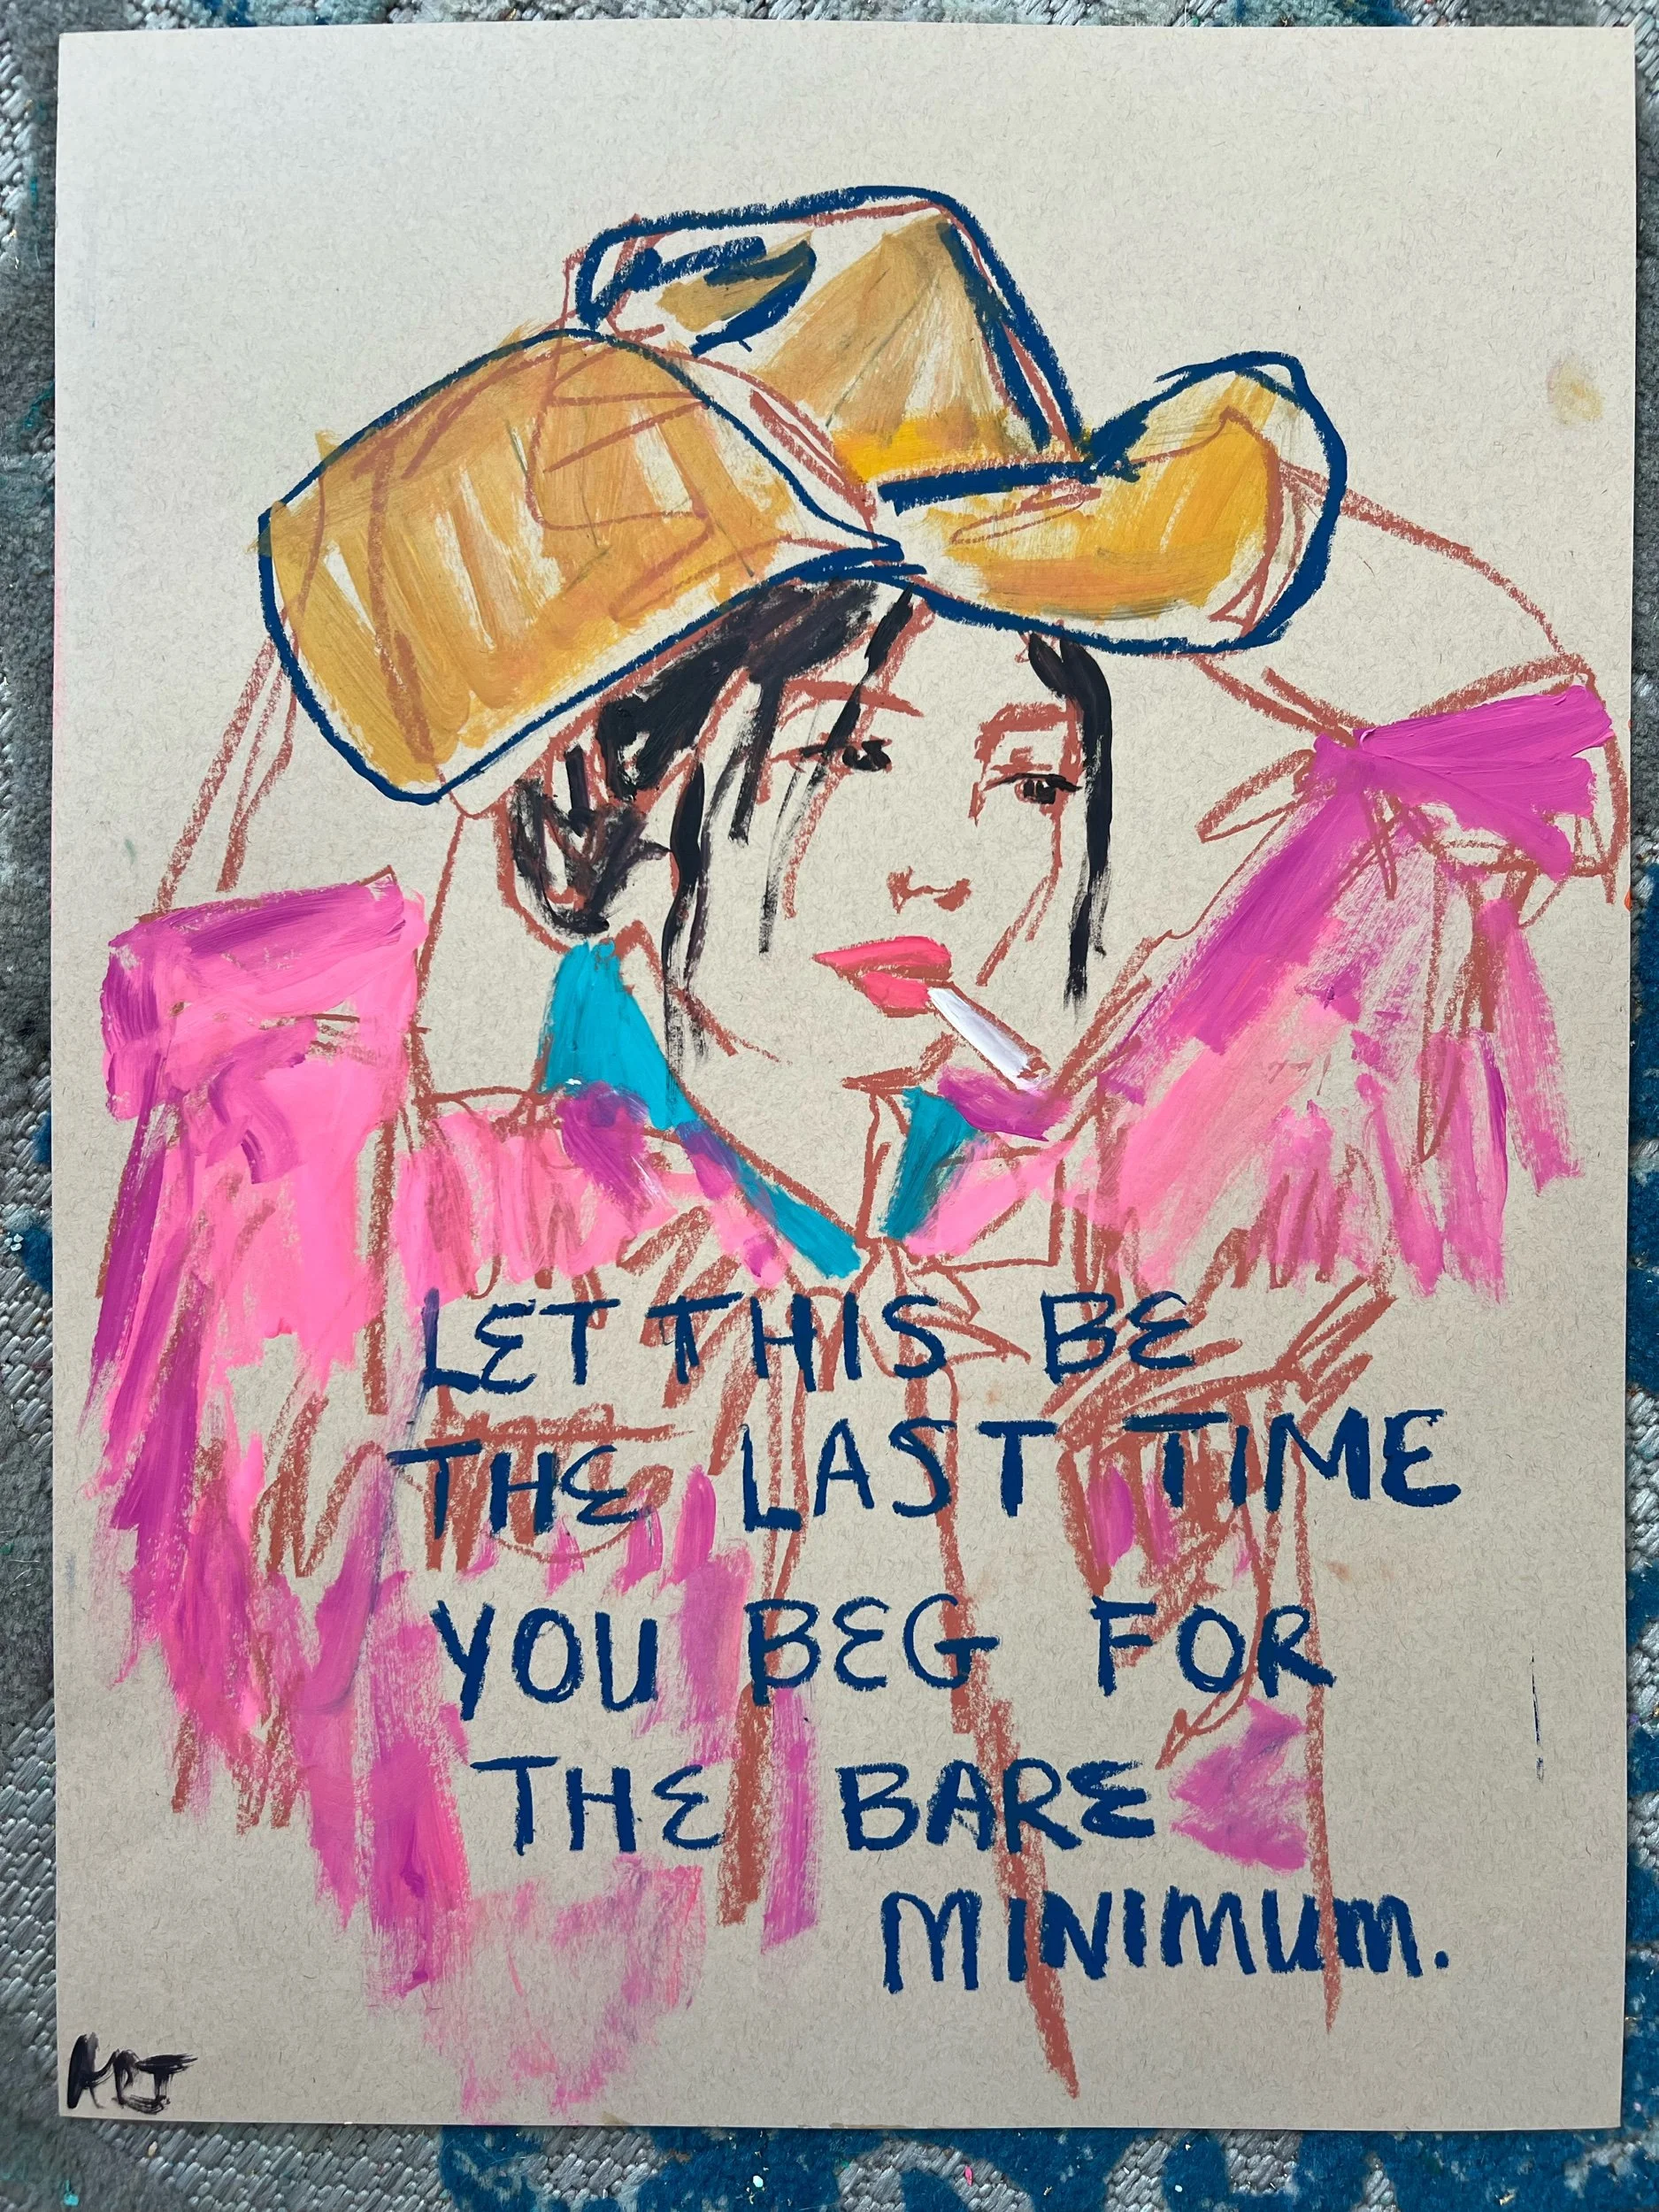 LET THIS BE
THE LAST TIME
YOU BEG FOR
THE BARE
MINIMUM.